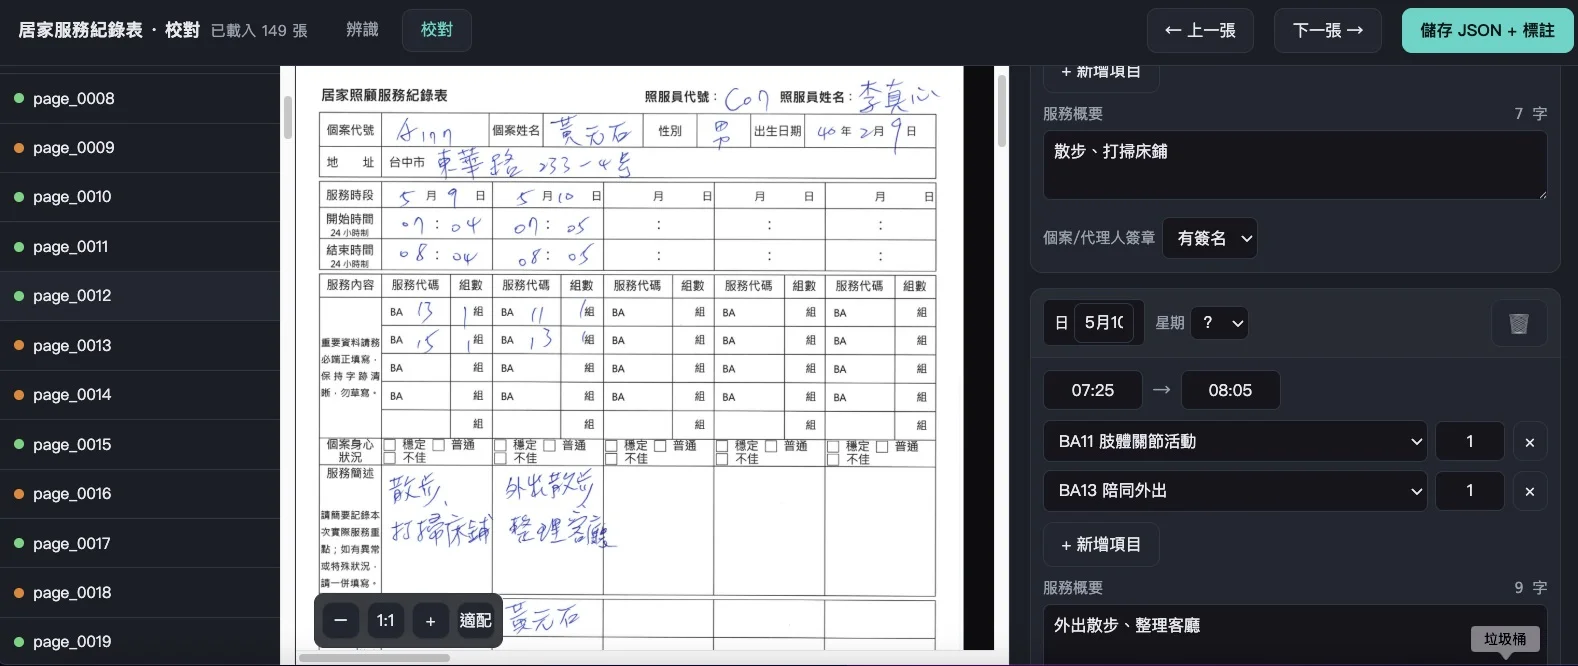 居家服務紀錄表 · 校對 已載入 149 張 辨識 校對 ← 上一張 下一張 → 儲存 JSON + 標註
page_0008
page_0009
page_0010
page_0011
page_0012
page_0013
page_0014
page_0015
page_0016
page_0017
page_0018
page_0019
居家照顧服務紀錄表 照服員代號： C07 照服員姓名： 李真心
個案代號 A177 個案姓名 黃元石 性別 男 出生日期 40 年 2 月 9 日
地 址 台中市 東華路 233-4号
服務時段 5 月 9 日 5 月 10 日 月 日 月 日 月 日
開始時間 07 : 04 07 : 05 : : :
24 小時制
結束時間 08 : 04 08 : 05 : : :
24 小時制
服務內容 服務代碼 組數 服務代碼 組數 服務代碼 組數 服務代碼 組數 服務代碼 組數
BA 13 1 組 BA 11 1 組 BA 組 BA 組 BA 組
BA 15 1 組 BA 13 1 組 BA 組 BA 組 BA 組
BA 組 BA 組 BA 組 BA 組 BA 組
BA 組 BA 組 BA 組 BA 組 BA 組
組 組 組 組 組
重要資料請務
必端正填寫，
保持字跡清
晰，勿草寫。
個案身心 穩定 普通 穩定 普通 穩定 普通 穩定 普通 穩定 普通
狀況 不佳 不佳 不佳 不佳 不佳
服務簡述
請簡要記錄本
次實際服務重
點；如有異常
或特殊狀況，
請一併填寫。
散步、
打掃床鋪
外出散步
整理客廳
黃元石
− 1:1 + 適配
+ 新增項目
服務概要 7 字
散步、打掃床鋪
個案/代理人簽章 有簽名
日 5月10 星期 ?
07:25 → 08:05
BA11 肢體關節活動 1 ×
BA13 陪同外出 1 ×
+ 新增項目
服務概要 9 字
外出散步、整理客廳
垃圾桶